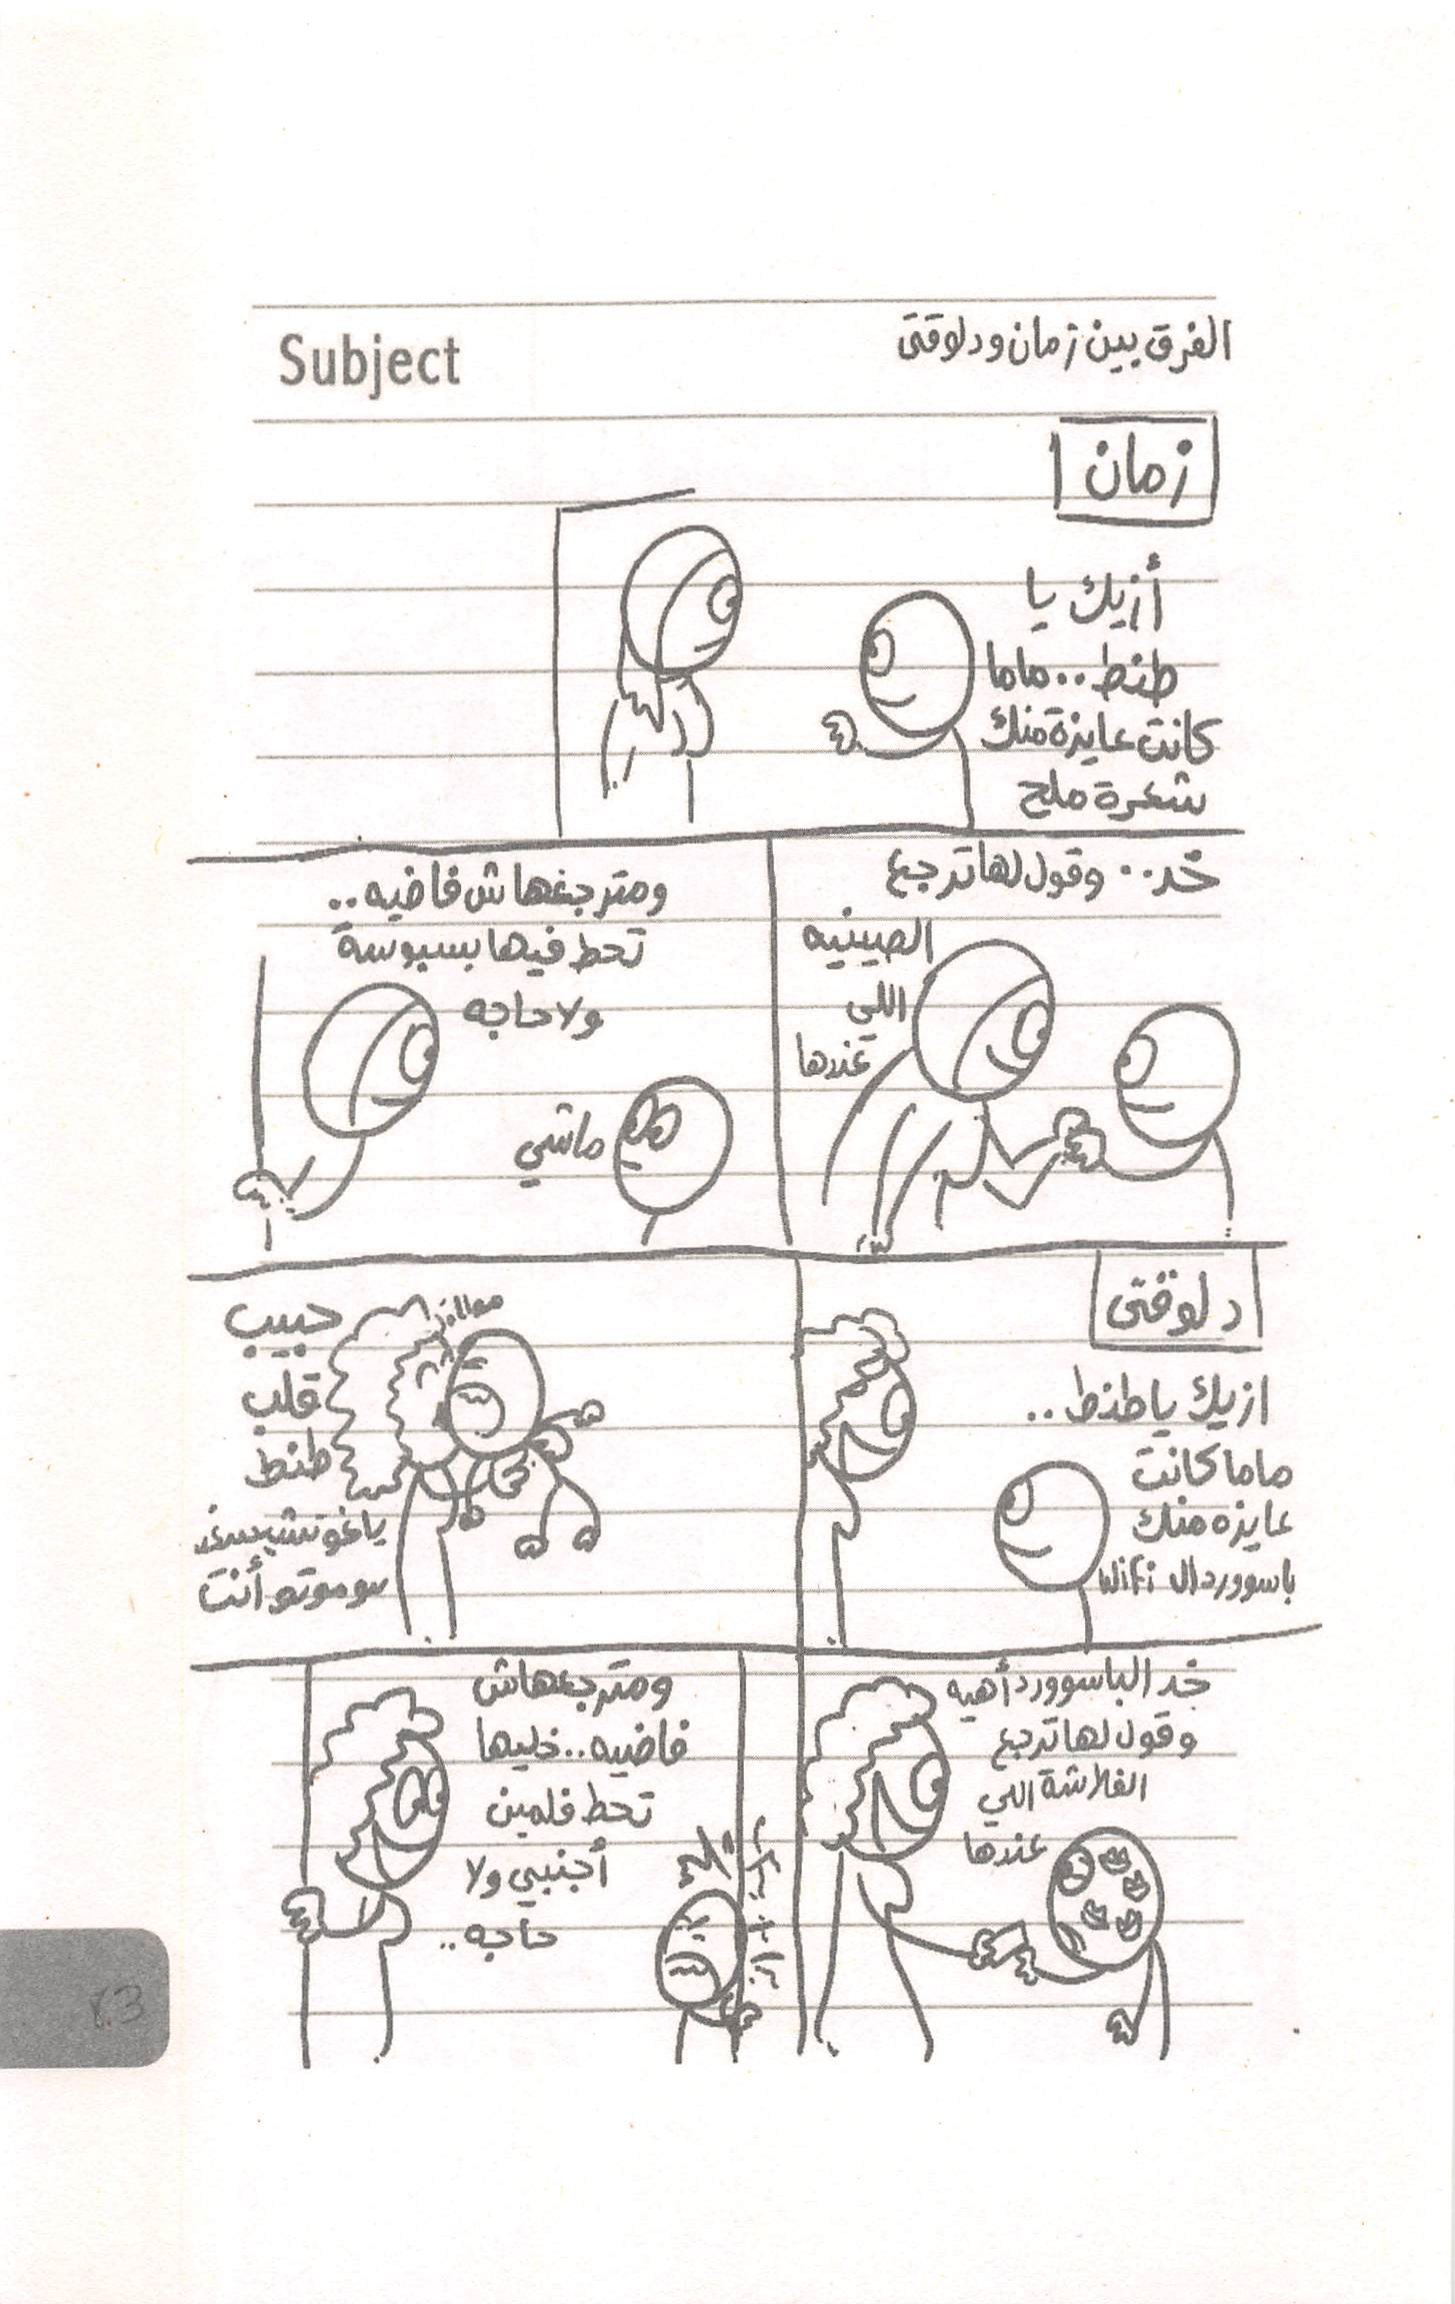 Subject
الفرق بين زمان ودلوقتى
زمان
أزيك يا
طنط.. ماما
كانت عايزة منك
شعرة ملح
خد.. وقول لها ترجع
الصينيه
اللي
عندها
ومترجعهاش فاضيه..
تحط فيها بسبوسة
ولا حاجه
ماشي
دلوقتى
ازيك يا طنط..
ماما كانت
عايزه منك
باسوورد ال wifi
حبيب
قلب
طنط
سوموتو أنت
خد الباسوورد أهيه
وقول لها ترجع
الفلاشة اللي
عندها
ومترجعهاش
فاضيه.. خليها
تحط فلمين
أجنبي ولا
حاجه..